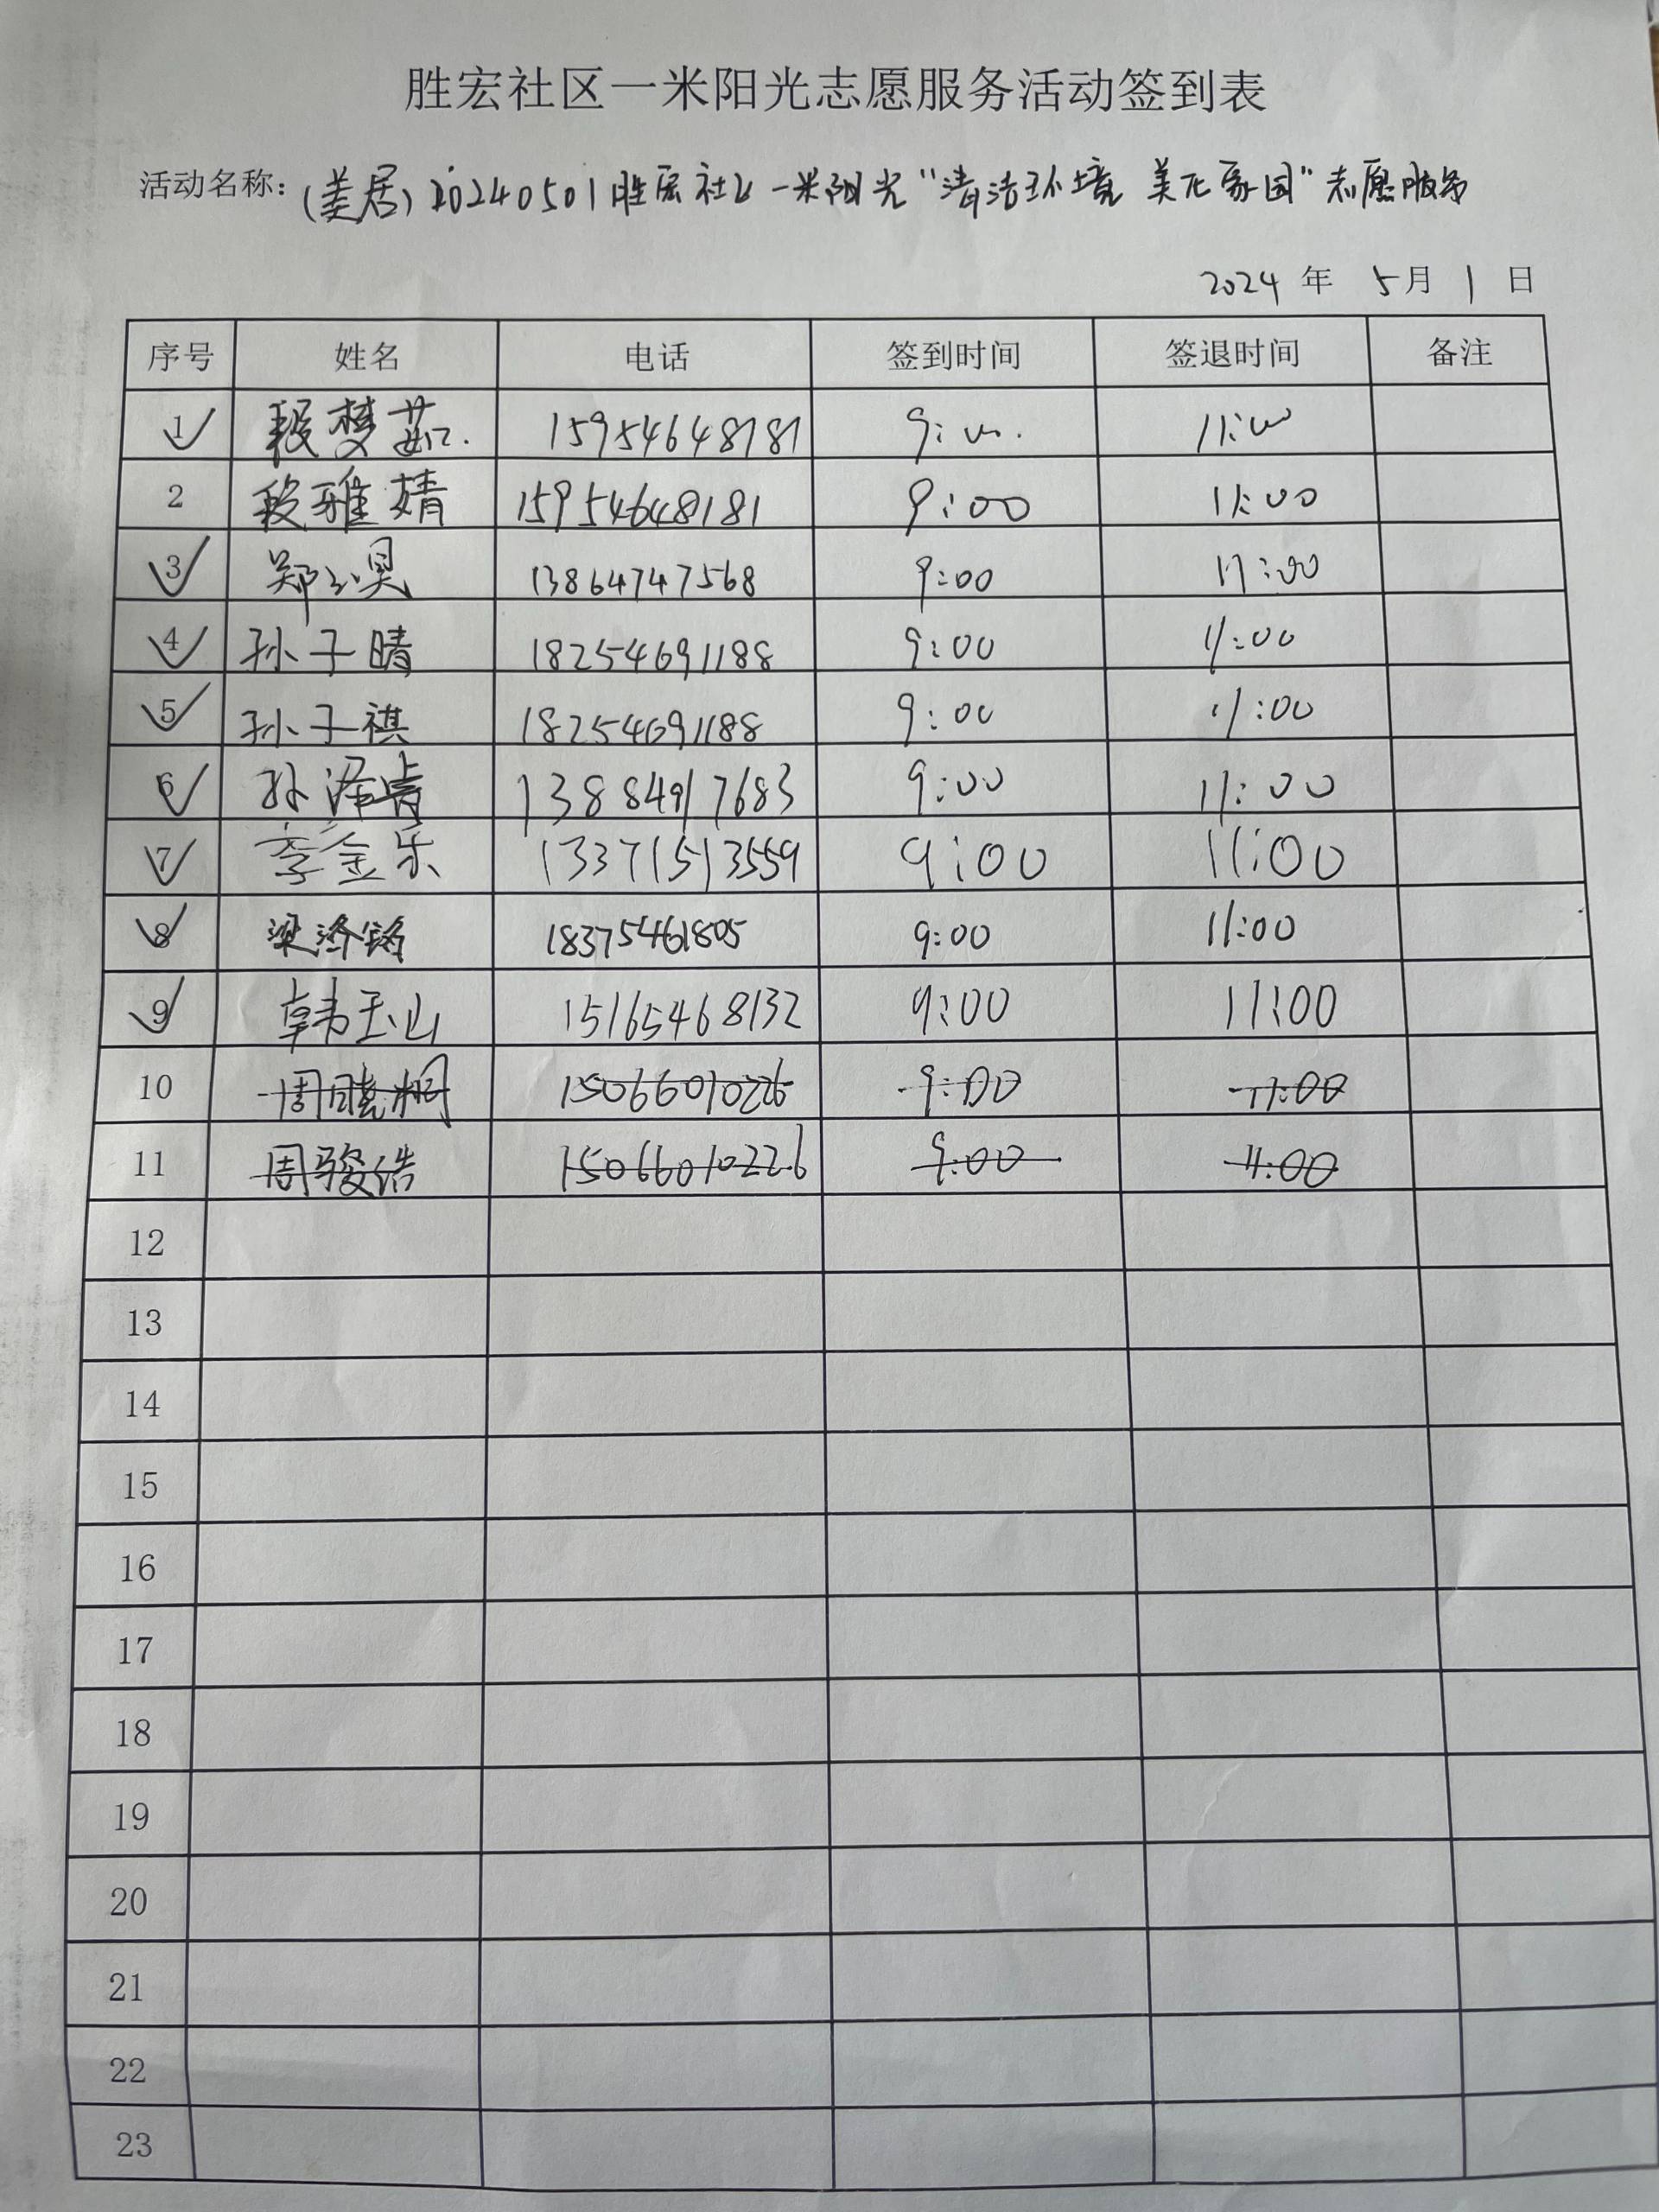 胜宏社区一米阳光志愿服务活动签到表
活动名称：（美居）20240501胜宏社区一米阳光“清洁环境 美化家园”志愿服务
2024 年 5月 1 日
序号 姓名 电话 签到时间 签退时间 备注
1 段梦茹 15954648181 9:00 11:00
2 段雅婧 15954648181 9:00 11:00
3 郑 13864747568 9:00 11:00
4 孙子晴 18254691188 9:00 11:00
5 孙子祺 18254691188 9:00 11:00
6 孙泽 13884917683 9:00 11:00
7 李金乐 13371513559 9:00 11:00
8 梁 18375461805 9:00 11:00
9 韩玉山 15165468132 9:00 11:00
10 周晓桐 15066010226 9:00 11:00
11 周骏皓 15066010226 9:00 11:00
12
13
14
15
16
17
18
19
20
21
22
23